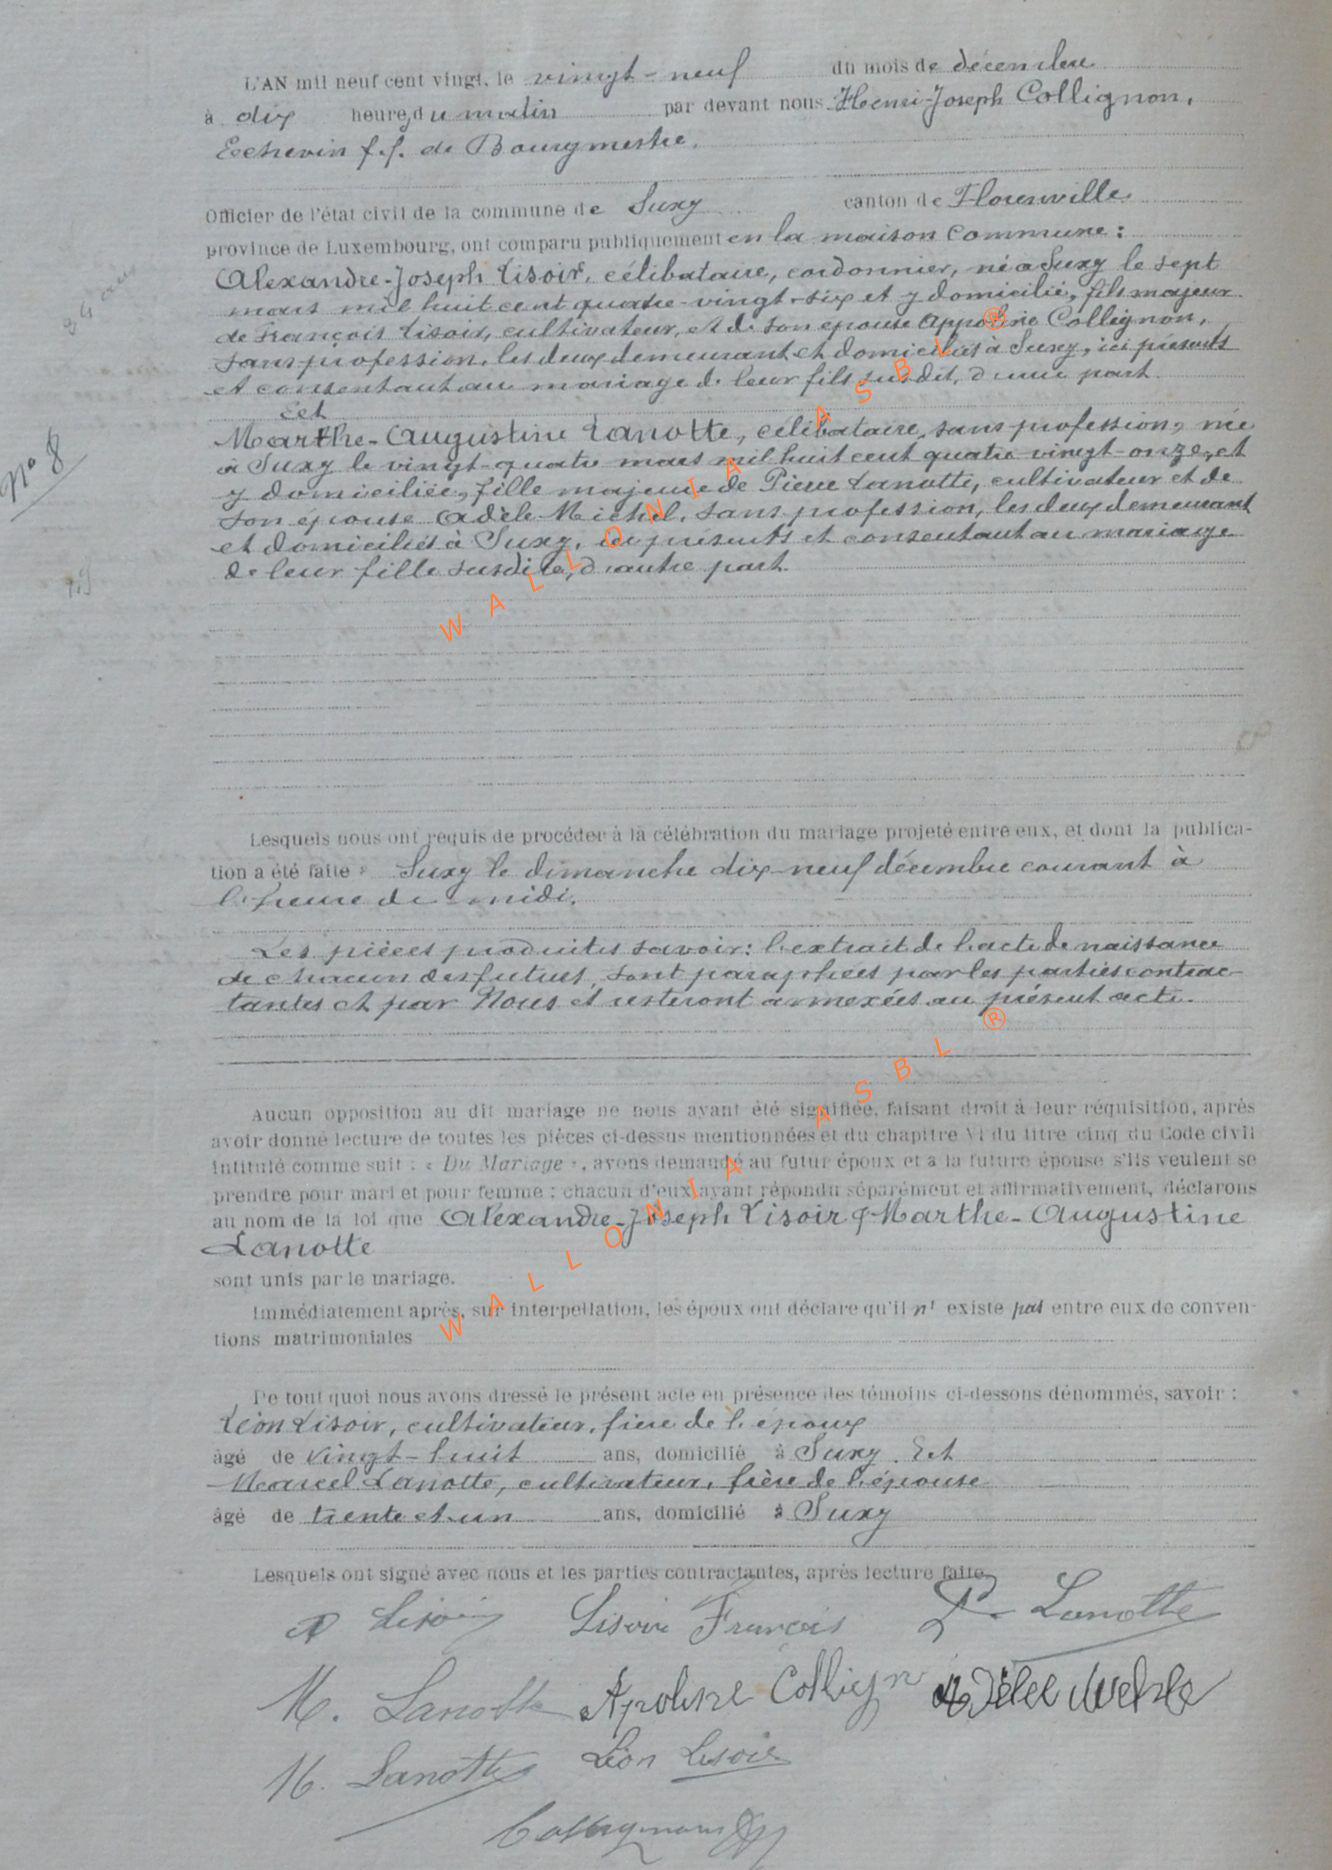 L'AN mil neuf cent vingt, le vingt-neuf du mois de décembre
à dix heures du matin par devant nous Henri-Joseph Collignon,
Echevin f.f. de Bourgmestre,
Officier de l'état civil de la commune de Suxy canton de Florenville
province de Luxembourg, ont comparu publiquement en la maison commune :
Alexandre-Joseph Lisoir, célibataire, cordonnier, né à Suxy le sept
mars mil huit cent quatre-vingt-six et y domicilié, fils majeur
de François Lisoir, cultivateur, et de son épouse Appoline Collignon,
sans profession, les deux demeurant et domiciliés à Suxy, ici présents
et consentant au mariage de leur fils susdit, d'une part
Et
Marthe-Augustine Lanotte, célibataire, sans profession, née
à Suxy le vingt-quatre mars mil huit cent quatre-vingt-onze, et
y domiciliée, fille majeure de Pierre Lanotte, cultivateur et de
son épouse Adèle Michel, sans profession, les deux demeurant
et domiciliés à Suxy, ici présents et consentant au mariage
de leur fille susdite, d'autre part.
N° 8
Lesquels nous ont requis de procéder à la célébration du mariage projeté entre eux, et dont la publica-
tion a été faite à Suxy le dimanche dix-neuf décembre courant à
l'heure de midi.
Les pièces produites savoir: l'extrait de l'acte de naissance
de chacun des futurs, sont paraphées par les parties contrac-
tantes et par Nous et resteront annexées au présent acte.
Aucun opposition au dit mariage ne nous ayant été signifiée, faisant droit à leur réquisition, après
avoir donné lecture de toutes les pièces ci-dessus mentionnées et du chapitre VI du titre cinq du Code civil
intitulé comme suit : « Du Mariage », avons demandé au futur époux et à la future épouse s'ils veulent se
prendre pour mari et pour femme : chacun d'eux ayant répondu séparément et affirmativement, déclarons
au nom de la loi que Alexandre-Joseph Lisoir & Marthe-Augustine
Lanotte
sont unis par le mariage.
Immédiatement après, sur interpellation, les époux ont déclaré qu'il n' existe pas entre eux de conven-
tions matrimoniales
De tout quoi nous avons dressé le présent acte en présence des témoins ci-dessons dénommés, savoir :
Léon Lisoir, cultivateur, frère de l'époux
âgé de vingt-huit ans, domicilié à Suxy. Et
Marcel Lanotte, cultivateur, frère de l'épouse
âgé de trente et un ans, domicilié à Suxy
Lesquels ont signé avec nous et les parties contractantes, après lecture faite.
A Lisoir Lisoir François P. Lanotte
M. Lanotte Apoline Collign Adèle
M. Lanotte Léon Lisoir
WALLONIA ASBL ®
WALLONIA ASBL ®